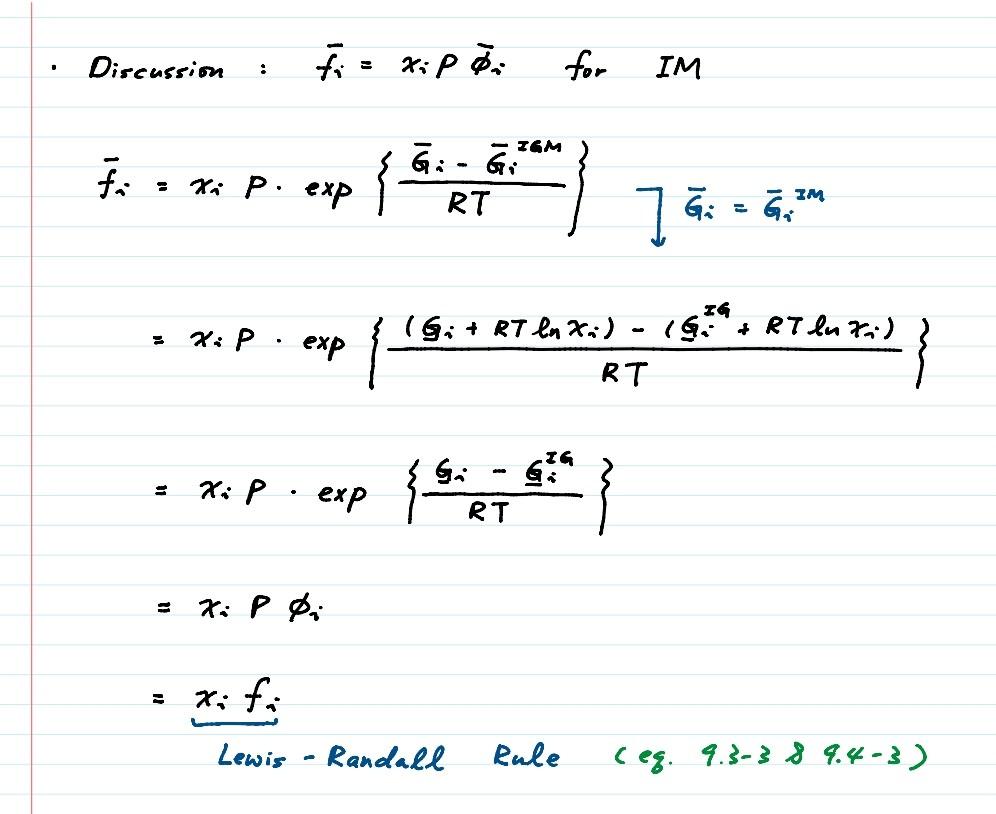 · Discussion : f̄ᵢ = xᵢ P φ̄ᵢ for IM
f̄ᵢ = xᵢ P · exp { (Ḡᵢ - Ḡᵢ^IGM) / RT } Ḡᵢ = Ḡᵢ^IM
= xᵢ P · exp { ((G̲ᵢ + RT ln xᵢ) - (G̲ᵢ^IG + RT ln xᵢ)) / RT }
= xᵢ P · exp { (G̲ᵢ - G̲ᵢ^IG) / RT }
= xᵢ P φᵢ
= xᵢ fᵢ
Lewis - Randall Rule (eq. 9.3-3 & 9.4-3)